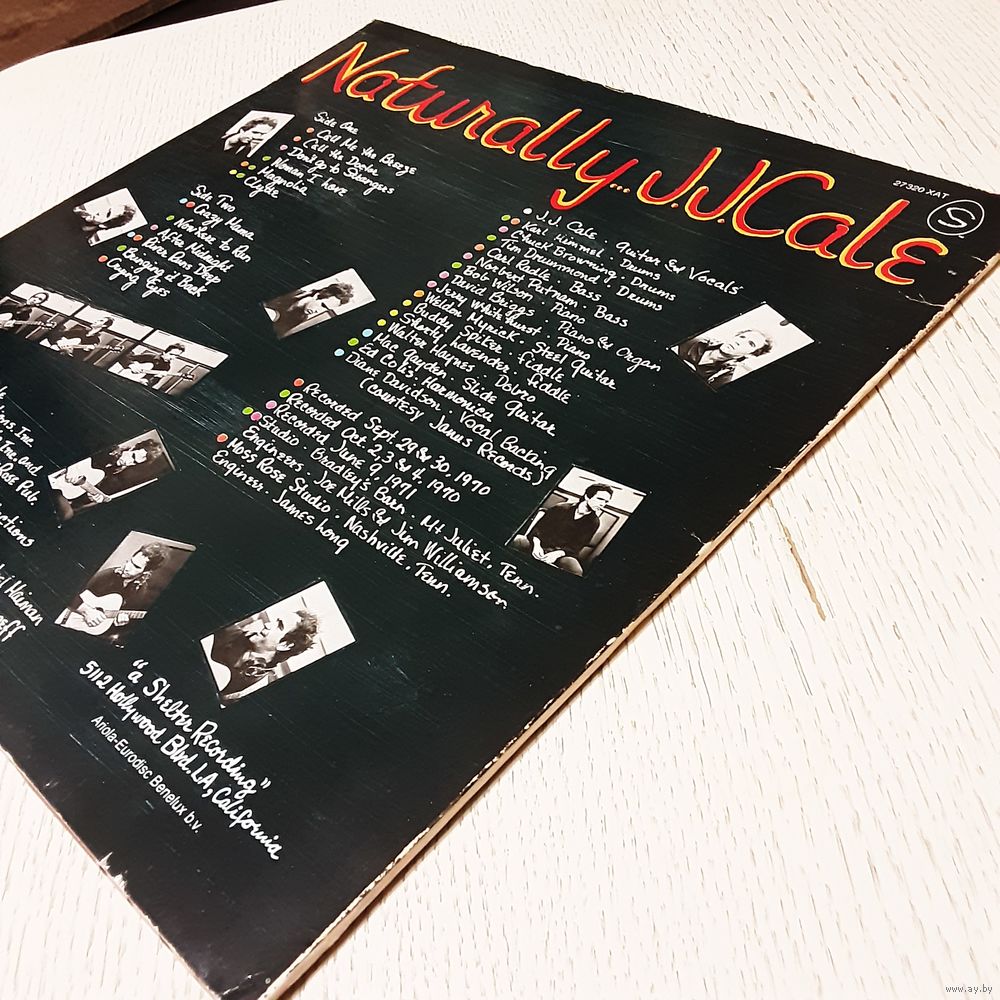 Naturally... J.J. Cale
27320 XAT
S
Side One
Call Me the Breeze
Call the Doctor
Don't go to Strangers
Woman I Love
Magnolia
Clyde
Side Two
Crazy Mama
Nowhere to Run
After Midnight
River Runs Deep
Bringing it Back
Crying Eyes
J.J. Cale . Guitar & Vocals
Karl Himmel . Drums
Chuck Browning . Drums
Tim Drummond . Bass
Carl Radle . Bass
Norbert Putnam . Bass
Bob Wilson . Piano
David Briggs . Piano & Organ
Jerry Whitehurst . Piano
Weldon Myrick . Steel Guitar
Buddy Spiker . Fiddle
Shorty Lavender . Fiddle
Walter Haynes . Dobro
Mac Gayden . Slide Guitar
Ed Colis . Harmonica
Diane Davidson . Vocal Backing
(courtesy Janus Records)
Recorded Sept. 29 & 30, 1970
Recorded Oct. 2, 3 & 4, 1970
Recorded June 9, 1971
Studio . Bradley's Barn . Mt Juliet, Tenn.
Engineers . Joe Mills & Jim Williamson
Moss Rose Studio . Nashville, Tenn.
Engineer . James Long
Inc.
Inc and
Rose Pub.
"a Shelter Recording"
5112 Hollywood Blvd. LA, California
Ariola-Eurodisc Benelux b.v.
www.ay.by